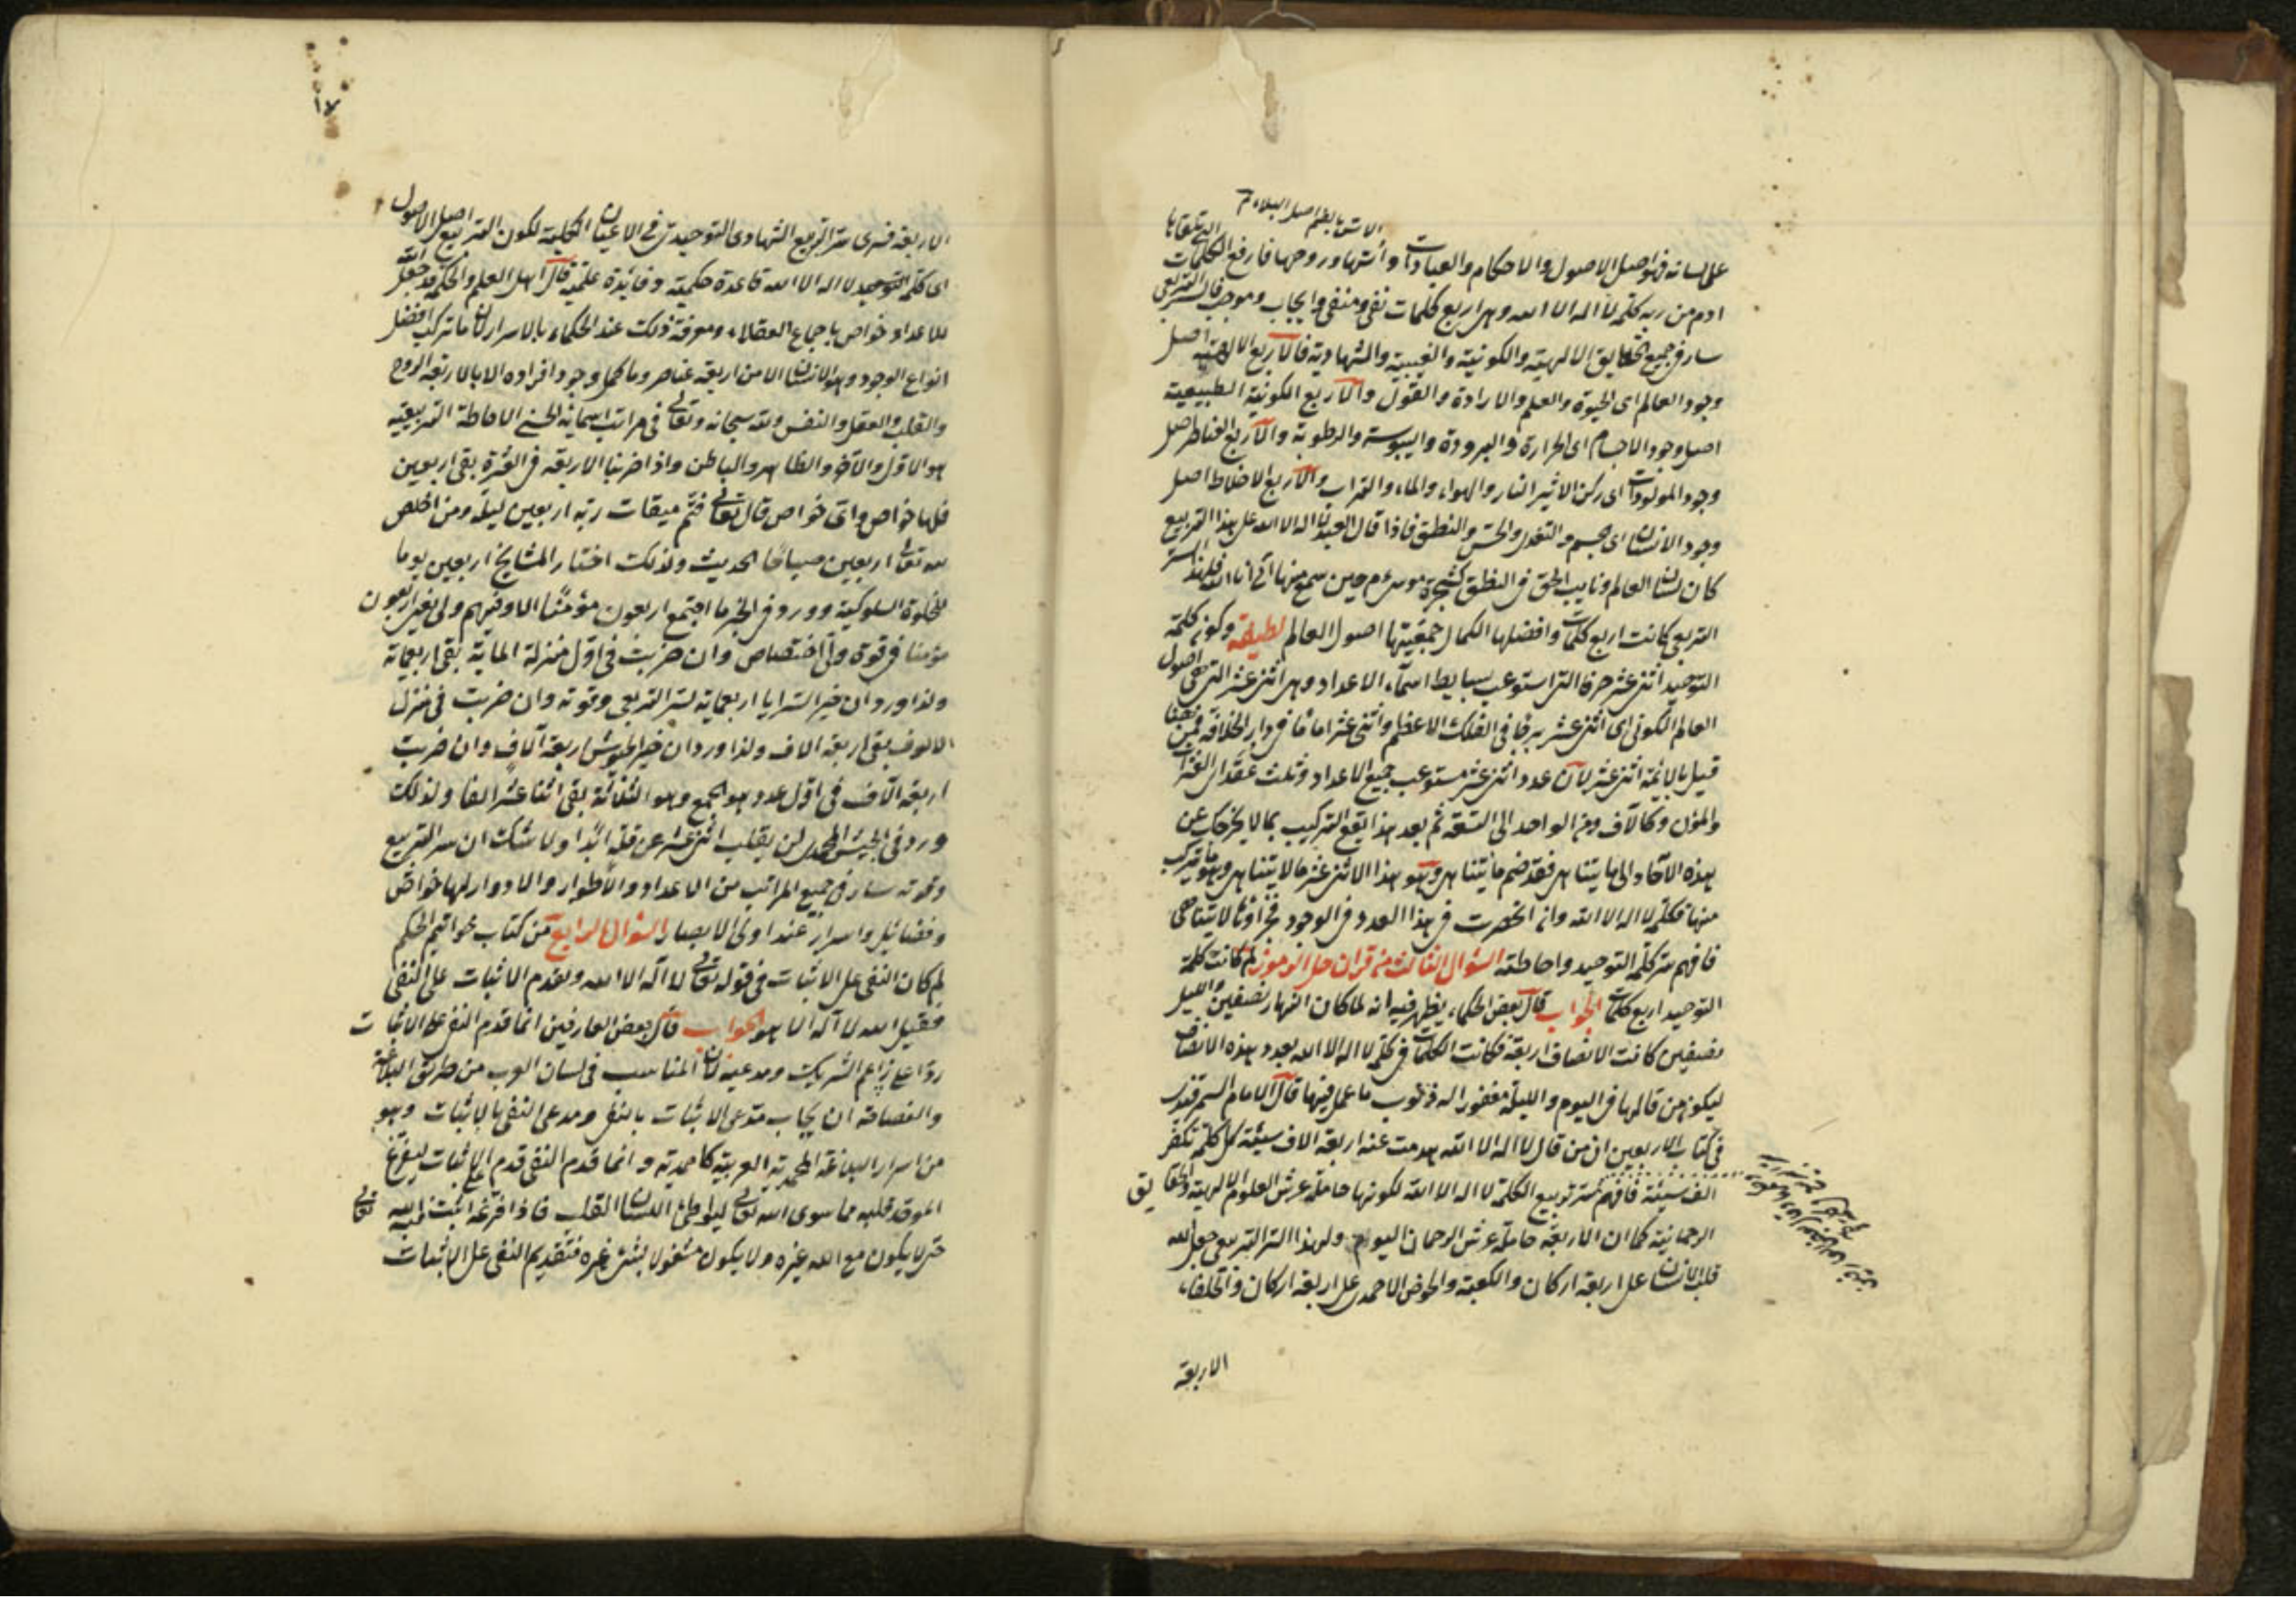 على لسانه فهو اصل الاصول والاحكام والعبادات واسّها وروحها فارفع الكلمات التي تلقاها
ادم من ربه كلمة لا اله الا الله وهي اربع كلمات نفي ومنفي وايجاب وموجب فالسر التربيعي
سار في جميع الحقايق الالهية والكونية والغيبية والشهادية فالاربع الالهية اصل
وجود العالم اى الحيوة والعلم والارادة والقول والاربع الكونية الطبيعية
اصل وجود الاجسام اى الحرارة والبرودة واليبوسة والرطوبة والاربع العناصر اصل
وجود المولودات اى ركن الاثير النار والهواء والماء والتراب والاربع الاخلاط اصل
وجود الانسان اى جسم والتغذى والحس والنطق فاذا قال العبد لا اله الا الله على هذا التربيع
كان لسان العالم ونايب الحق في النطق كشجرة موسى م حين سمع منها انى انا الله فلهذا السر
التربيعي كانت اربع كلمات وافضلها الكمال جمعيتها اصول العالم لطيفة وكون كلمة
التوحيد اثنى عشر حرفا التى استوعب بسايط اسماء الاعداد وهى اثنى عشر التى هى اصول
العالم الكونى اى اثنى عشر برجا في الفلك الاعظم واثنى عشر اماما في دار الخلافة فمن هنا
قيل بالائمة اثنى عشر لان عدد اثنى عشر مستوعب جميع الاعداد وثلث عقد العشرات
والمؤن وكالاف ومن الواحد الى التسعة ثم بعد هذا يقع التركيب بما لا يخرجك عن
هذه الآحاد الى ما يتناهى فقد ضم ما يتناهى وهو هذا الاثنى عشر ما لا يتناهى وهو ما يتركب
منها فكلمة لا اله الا الله وان انحصرت في هذا العدد في الوجود فجزاؤها لا يتناهى
فافهم سر كلمة التوحيد واحاطته السؤال الثالث من قران حل الرموز لم كانت كلمة
التوحيد اربع كلمات الجواب قال بعض الحكماء يظهر فيه انه لما كان النهار نصفين والليل
نصفين كانت الانصاف اربعة فكانت الكلمات في كلمة لا اله الا الله بعدد هذه الانصاف
ليكون من قالها في اليوم والليلة مغفورا له ذنوب ما عمل فيها قال الامام السمرقندى
في كتاب الاربعين ان من قال لا اله الا الله هدمت عنه اربعة الاف سيئة كل كلمة تكفر
الف سيئة فافهم سر تربيع الكلمة لا اله الا الله لكونها حاملة عرش العلوم الالهية والحقايق
الرحمانية كما ان الاربعة حاملة عرش الرحمان اليوم ولهذا السر التربيعى جعل الله
قلب الانسان على اربعة اركان والكعبة والحوض الاحمدى على اربعة اركان والخلفاء
الاربعة
الاربعة فسرى سر التربيع الشهادى التوحيدى في الاعيان الكلية لكون التربيع اصل الاصول
اى كلمة التوحيد لا اله الا الله قاعدة حكمية وفايدة علمية قال اهل العلم والحكمة قد جعل الله
للاعداد خواص باجماع العقلاء ومعرفة ذلك عند الحكماء بالاسرار لان ما تركب افضل
انواع الوجود وهو الانسان الا من اربعة عناصر وما كمل وجود افراده الا بالاربعة الروح
والقلب والعقل والنفس ولله سبحانه وتعالى في مراتب اسمايه الحسنى الاحاطة التربيعية
هو الاول والآخر والظاهر والباطن واذا ضربنا الاربعة في العشرة بقى اربعين
فلها خواص واى خواص قال تعالى فتم ميقات ربه اربعين ليلة ومن اخلص
لله تعالى اربعين صباحا الحديث ولذلك اختار المشايخ اربعين يوما
للخلوة السلوكية وورد في الخبر ما اجتمع اربعون مؤمنا الا وفيهم ولى يعنى اربعون
مؤمنا في قوة ولى اختصاص وان ضربت في اول منزلة المائة بقى اربعماية
ولذا ورد ان خير السرايا اربعماية لسر التربيعى وقوته وان ضربت في منزل
الالوف بقى اربعة الاف ولذا ورد ان خير الجيوش اربعة آلاف وان ضربت
اربعة الآف في اول عدد هو الجمع وهو الثلاثة بقى اثنا عشر الفا ولذلك
ورد في الجيش المحمدى لن يغلب اثنى عشر عن قلة ابدا ولا شك ان سر التربيع
وقوته سار في جميع المراتب من الاعداد والاطوار والادوار لها خواص
وفضايل واسرار عند اولى الابصار السؤال الرابع من كتاب خواتم الحكم
لم كان النفى على الاثبات في قوله تعالى لا اله الا الله ولم يقدم الاثبات على النفى
فقيل الله لا اله الا هو الجواب قال بعض العارفين انما قدم النفى على الاثبات
ردا على زاعم الشريك ومدعيه لان المناسب في لسان العرب من طريق البلاغة
والفصاحة ان يجاب مدعى الاثبات بالنفى ومدعى النفى بالاثبات وهو
من اسرار البلاغة المحمدية العربية كما محمدية وانما قدم النفى قدم الاثبات ليفرغ
الموحد قلبه مما سوى الله تعالى ليواطئ اللسان القلب فاذا افرغه اثبت فيه الله تعالى
حتى لا يكون مع الله غيره ولا يكون مشغولا بشئ غيره فتقديم النفى على الاثبات